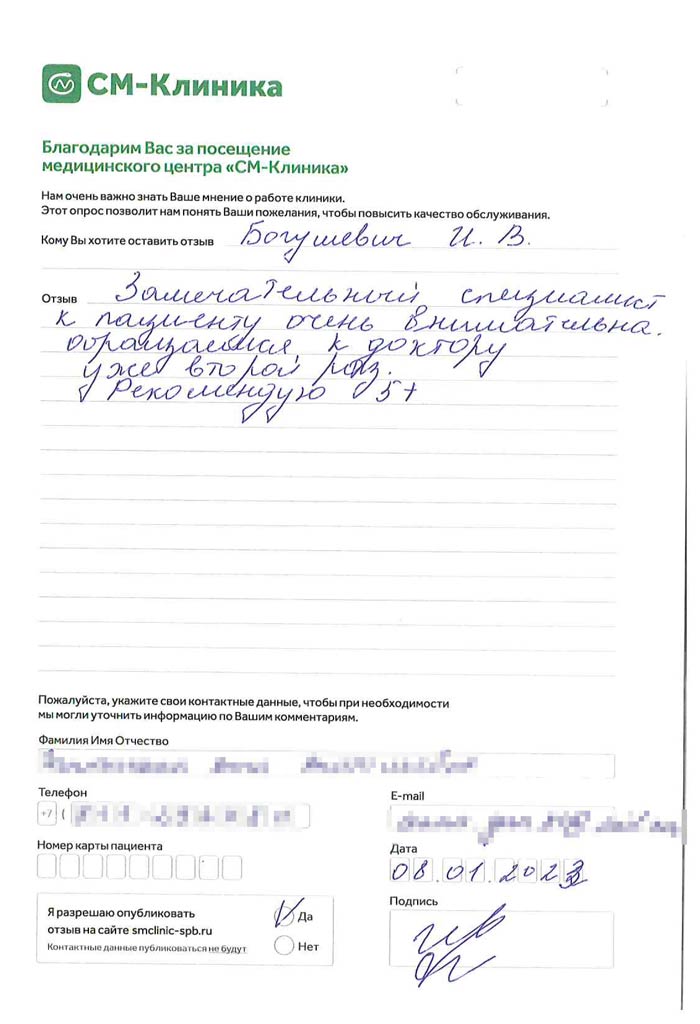 СМ-Клиника
Благодарим Вас за посещение
медицинского центра «СМ-Клиника»
Нам очень важно знать Ваше мнение о работе клиники.
Этот опрос позволит нам понять Ваши пожелания, чтобы повысить качество обслуживания.
Кому Вы хотите оставить отзыв Богушевич И. В.
Отзыв Замечательный специалист
к пациенту очень внимательна.
обращаемся к доктору
уже второй раз.
Рекомендую 5+
Пожалуйста, укажите свои контактные данные, чтобы при необходимости
мы могли уточнить информацию по Вашим комментариям.
Фамилия Имя Отчество
Телефон
E-mail
+7 (
Номер карты пациента
Дата
08.01.2023
Я разрешаю опубликовать
отзыв на сайте smclinic-spb.ru
Контактные данные публиковаться не будут
Да
Нет
Подпись